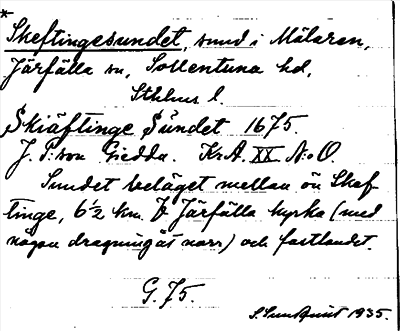 *
Skeftingesundet, sund i Mälaren,
Järfälla sn, Sollentuna hd,
Sthlms l.
Skiäftinge Sündet 1675.
J. P:son Giedda. KrA. XX N:o O
Sundet beläget mellan ön Skef-
tinge, 6½ km. V Järfälla kyrka (med
någon dragning åt norr) och fastlandet.
G. 75.
S. Sundquist 1935.